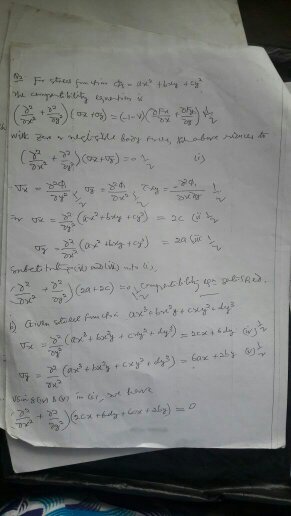 Q2. For stress function Φ₁ = ax² + bxy + cy²
The compatibility equation is
(∂²/∂x² + ∂²/∂y²)(σx + σy) = (-1-ν)(∂Fx/∂x + ∂Fy/∂y) ½
with zero or negligible body forces, the above reduces to
(∂²/∂x² + ∂²/∂y²)(σx + σy) = 0 ½ (i)
σx = ∂²Φ₁/∂y² ½, σy = ∂²Φ₁/∂x² ½, τxy = -∂²Φ₁/∂x∂y ½
σx = ∂²/∂y² (ax² + bxy + cy²) = 2c (ii) ½
σy = ∂²/∂x² (ax² + bxy + cy²) = 2a (iii) ½
Substituting (ii) and (iii) into (i),
(∂²/∂x² + ∂²/∂y²)(2a + 2c) = 0 ½ Compatibility eqn satisfied.
b) Given stress function ax³ + bx²y + cxy² + dy³
σx = ∂²/∂y² (ax³ + bx²y + cxy² + dy³) = 2cx + 6dy (iv) ½
σy = ∂²/∂x² (ax³ + bx²y + cxy² + dy³) = 6ax + 2by (v) ½
Using (iv) & (v) in (i), we have
(∂²/∂x² + ∂²/∂y²)(2cx + 6dy + 6ax + 2by) = 0